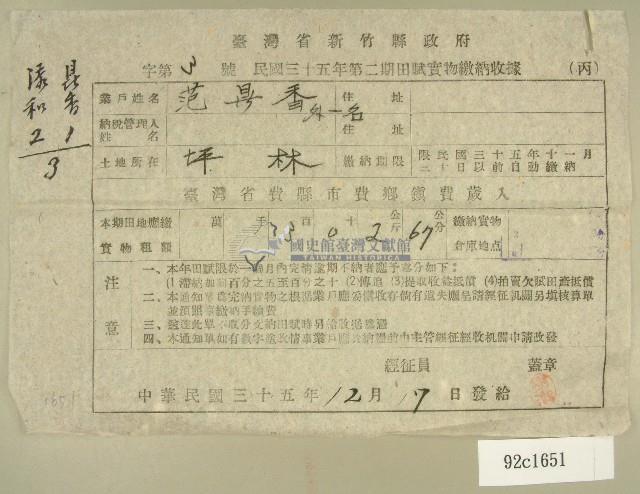 臺灣省新竹縣政府
字第 3 號 民國三十五年第二期田賦實物繳納收據 (丙)
業戶姓名 范昌香 外一名 住址
納稅管理人姓名 住址
土地所在 坪林 繳納期限 限民國三十五年十一月三十日以前自動繳納
臺灣省費縣市費鄉鎮費歲入
本期田地應繳實物租額 萬 千 百 0 十 2 公斤 67 公分 繳納實物倉庫地点
國史館臺灣文獻館
注意
一、本年田賦限於一個月內完納逾期不納者應予處分如下：
(1)滯納加罰百分之五至百分之十 (2)傳追 (3)提取收益抵償 (4)拍賣欠賦田產抵償
二、本通知單為完納實物之根據業戶應妥慎收存倘有遺失應呈請經征机關另填核算單
並預照章繳納手續費
四、本通知單如有數字
經征員 蓋章
中華民國三十五年 12 月 17 日發給
昌香 1
添和 2
3
1651
92c1651